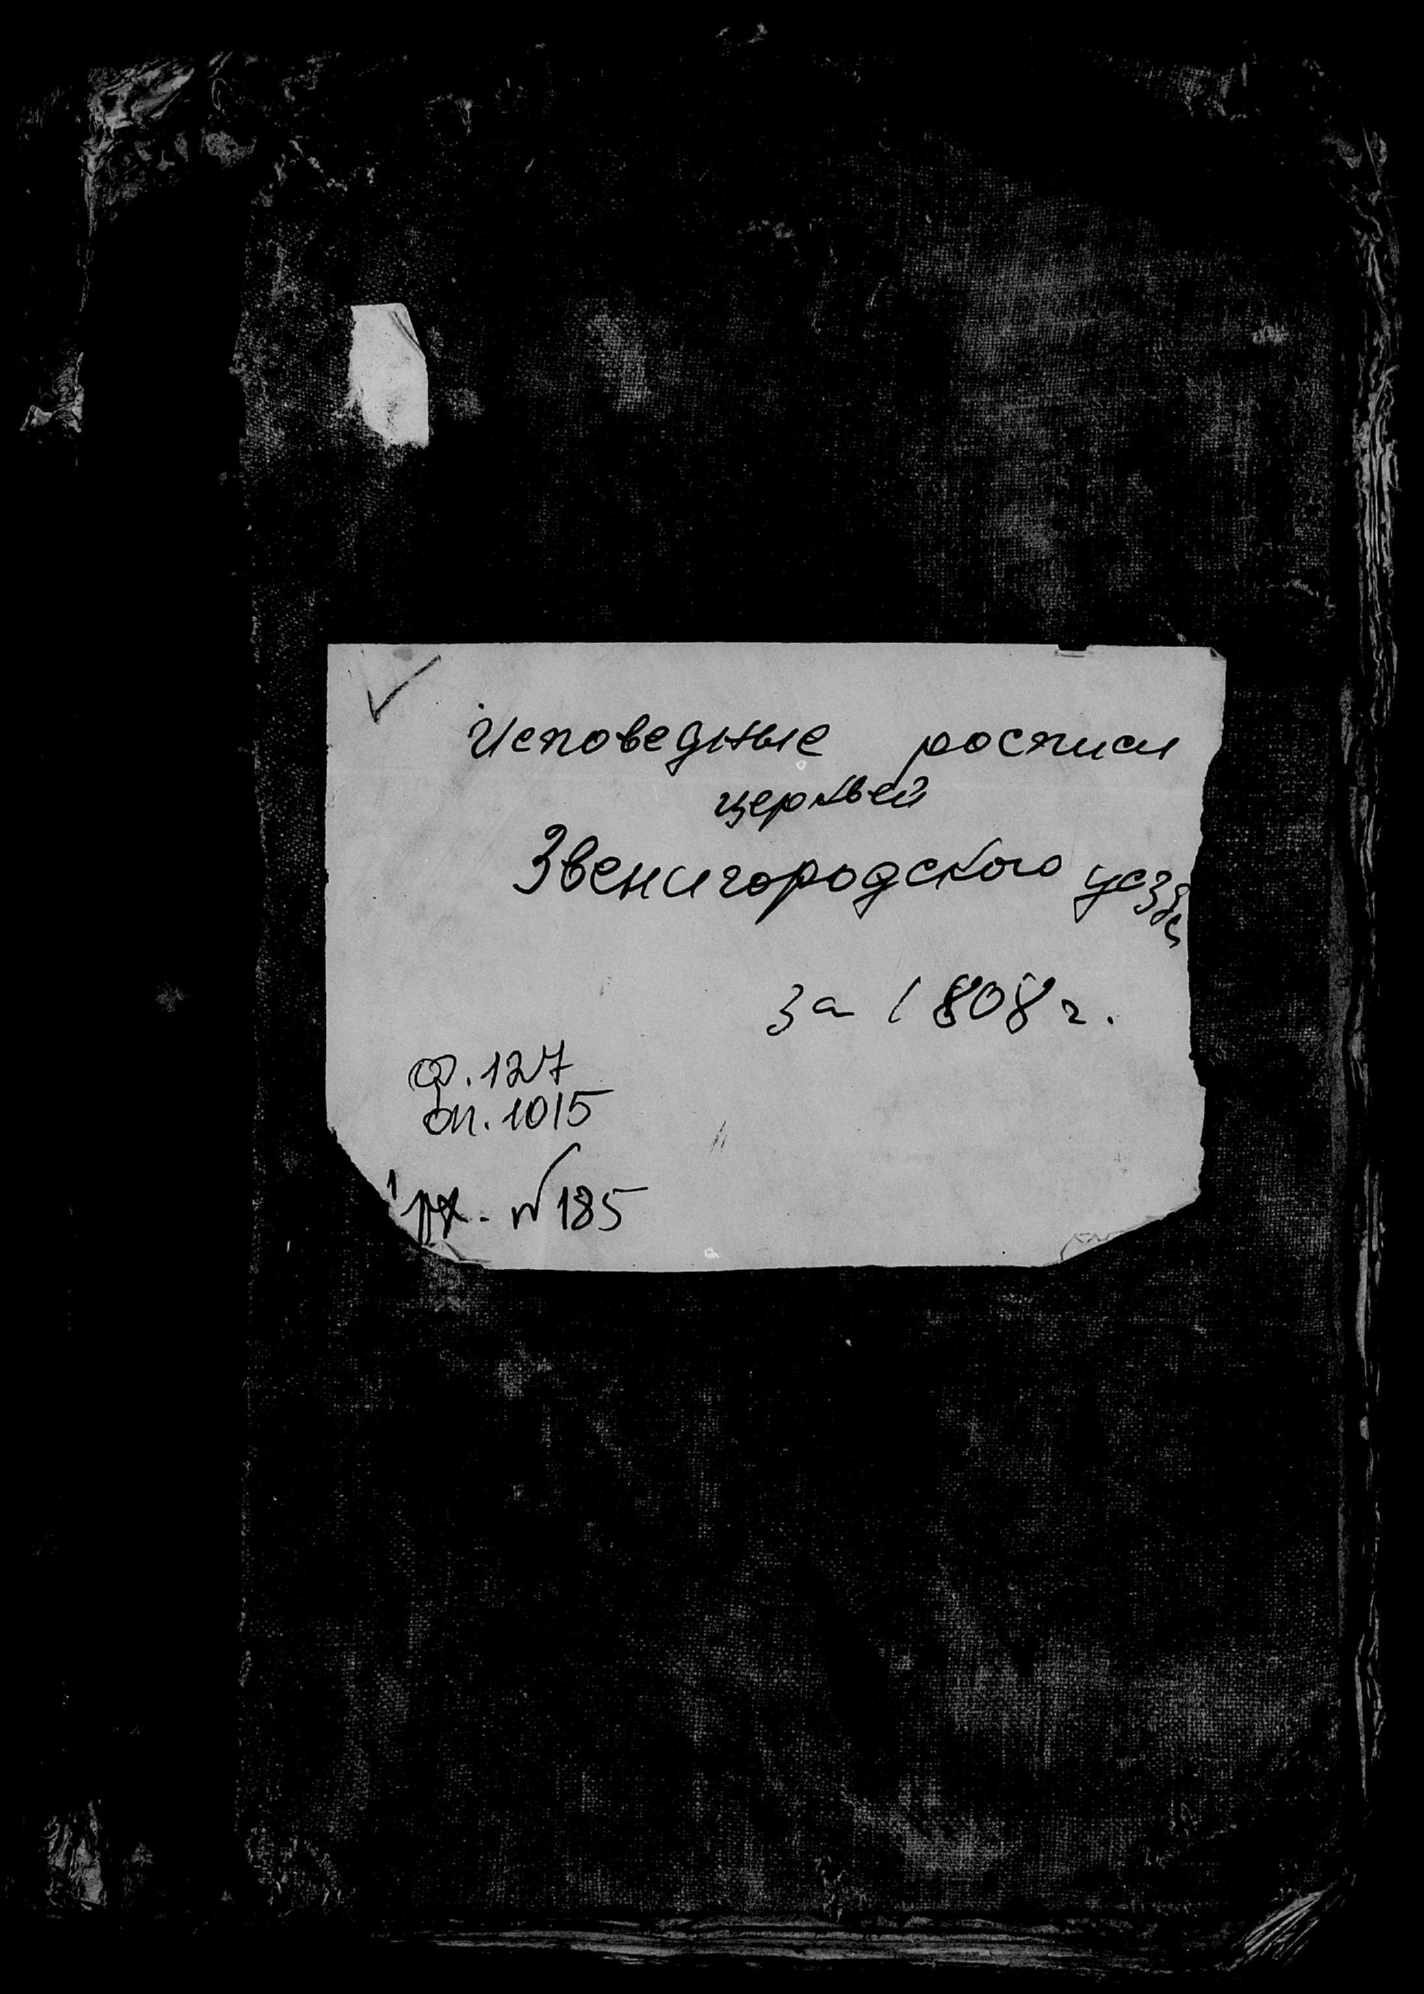 Исповедные росписи
церквей
Звенигородского уезда
за 1808 г.
ф. 127
оп. 1015
№ 185